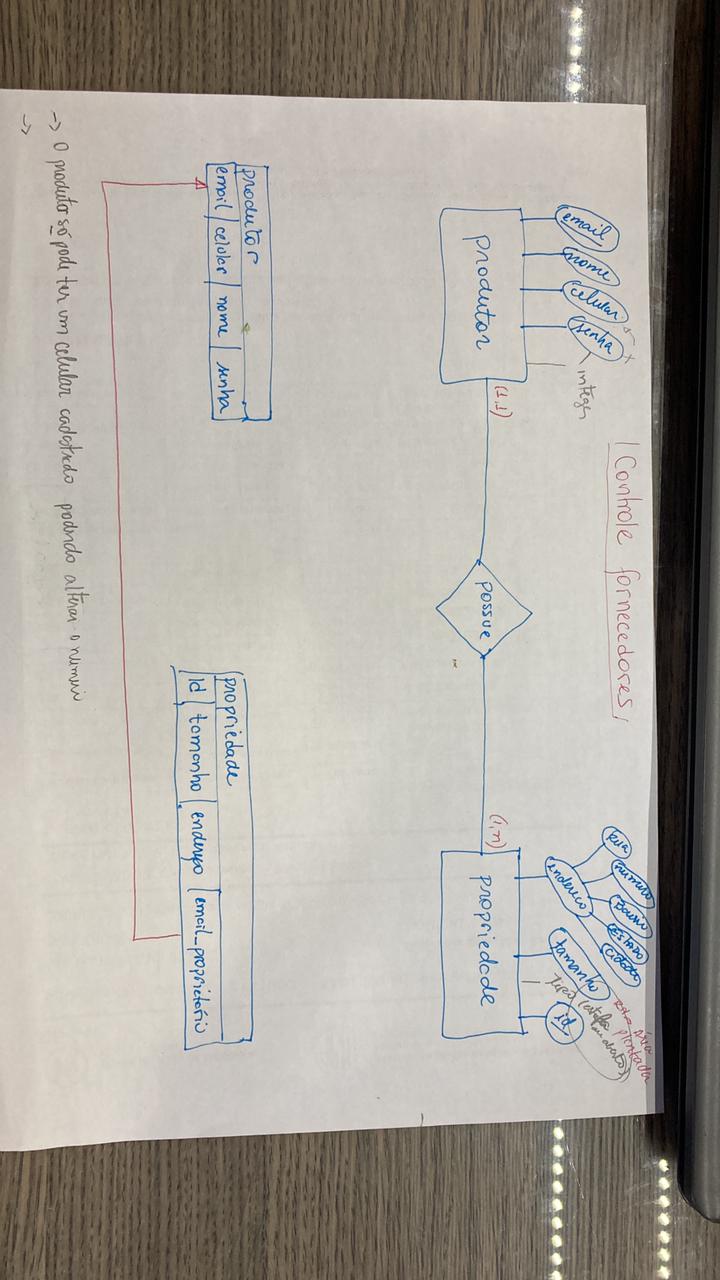 Controle fornecedores
email
nome
celular
senha
integer
produtor
(1,1)
possue
(1,n)
propriedade
endereço
rua
numero
Bairro
ESTADO
cidade
tamanho
área
plantada
id
produtor
email | celular | nome | senha
propriedade
Id | tamanho | endereço | email_proprietario
-> O produtor só pode ter um celular cadastrado podendo alterar o numero
->